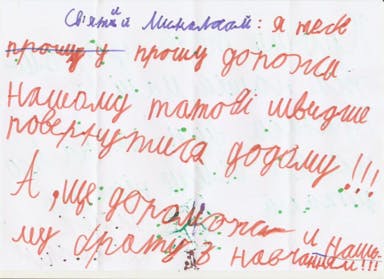 Святий Миколай: я тебе
прошу у прошу допожи
нашому татові швидше
повернутися додому!!!
А, ще допоможи и нашо-
му брату з навчаниям!!!